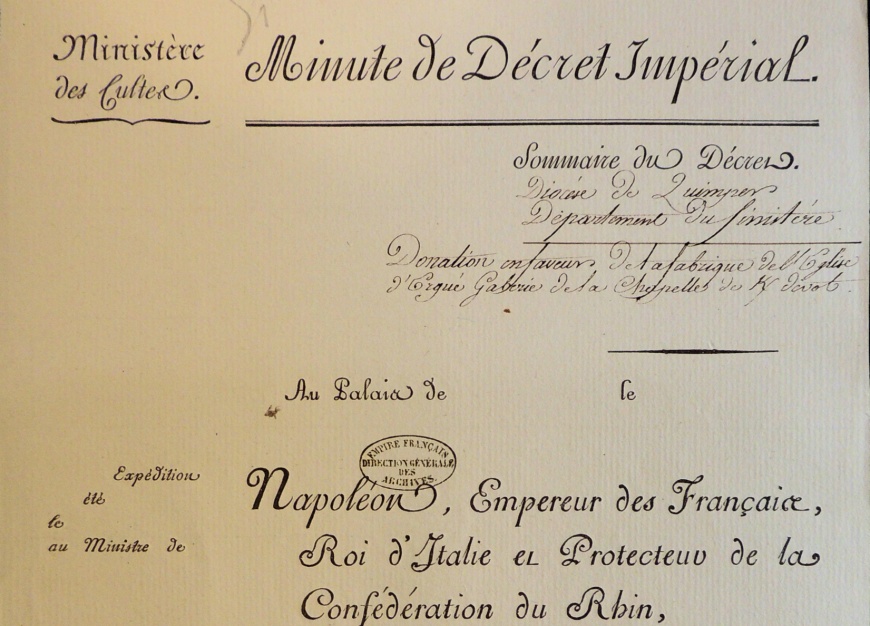 Ministère
des Cultes.
Minute de Décret Impérial.
Sommaire du Décret.
Diocèse de Quimper
Département du finistére
Donation en faveur de la fabrique de l'Eglise
d'Ergué Gaberic de la Chapelle de Kdevot.
Au Palais de le
EMPIRE FRANÇAIS
DIRECTION GÉNÉRALE
DES
ARCHIVES
Expédition
été
le
au Ministre de
Napoléon, Empereur des Français,
Roi d'Italie et Protecteur de la
Confédération du Rhin,